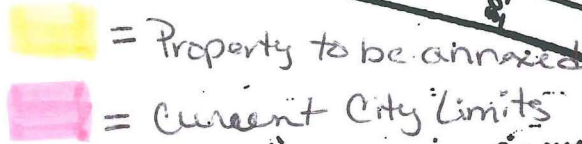 = Property to be annexed
= Current City Limits